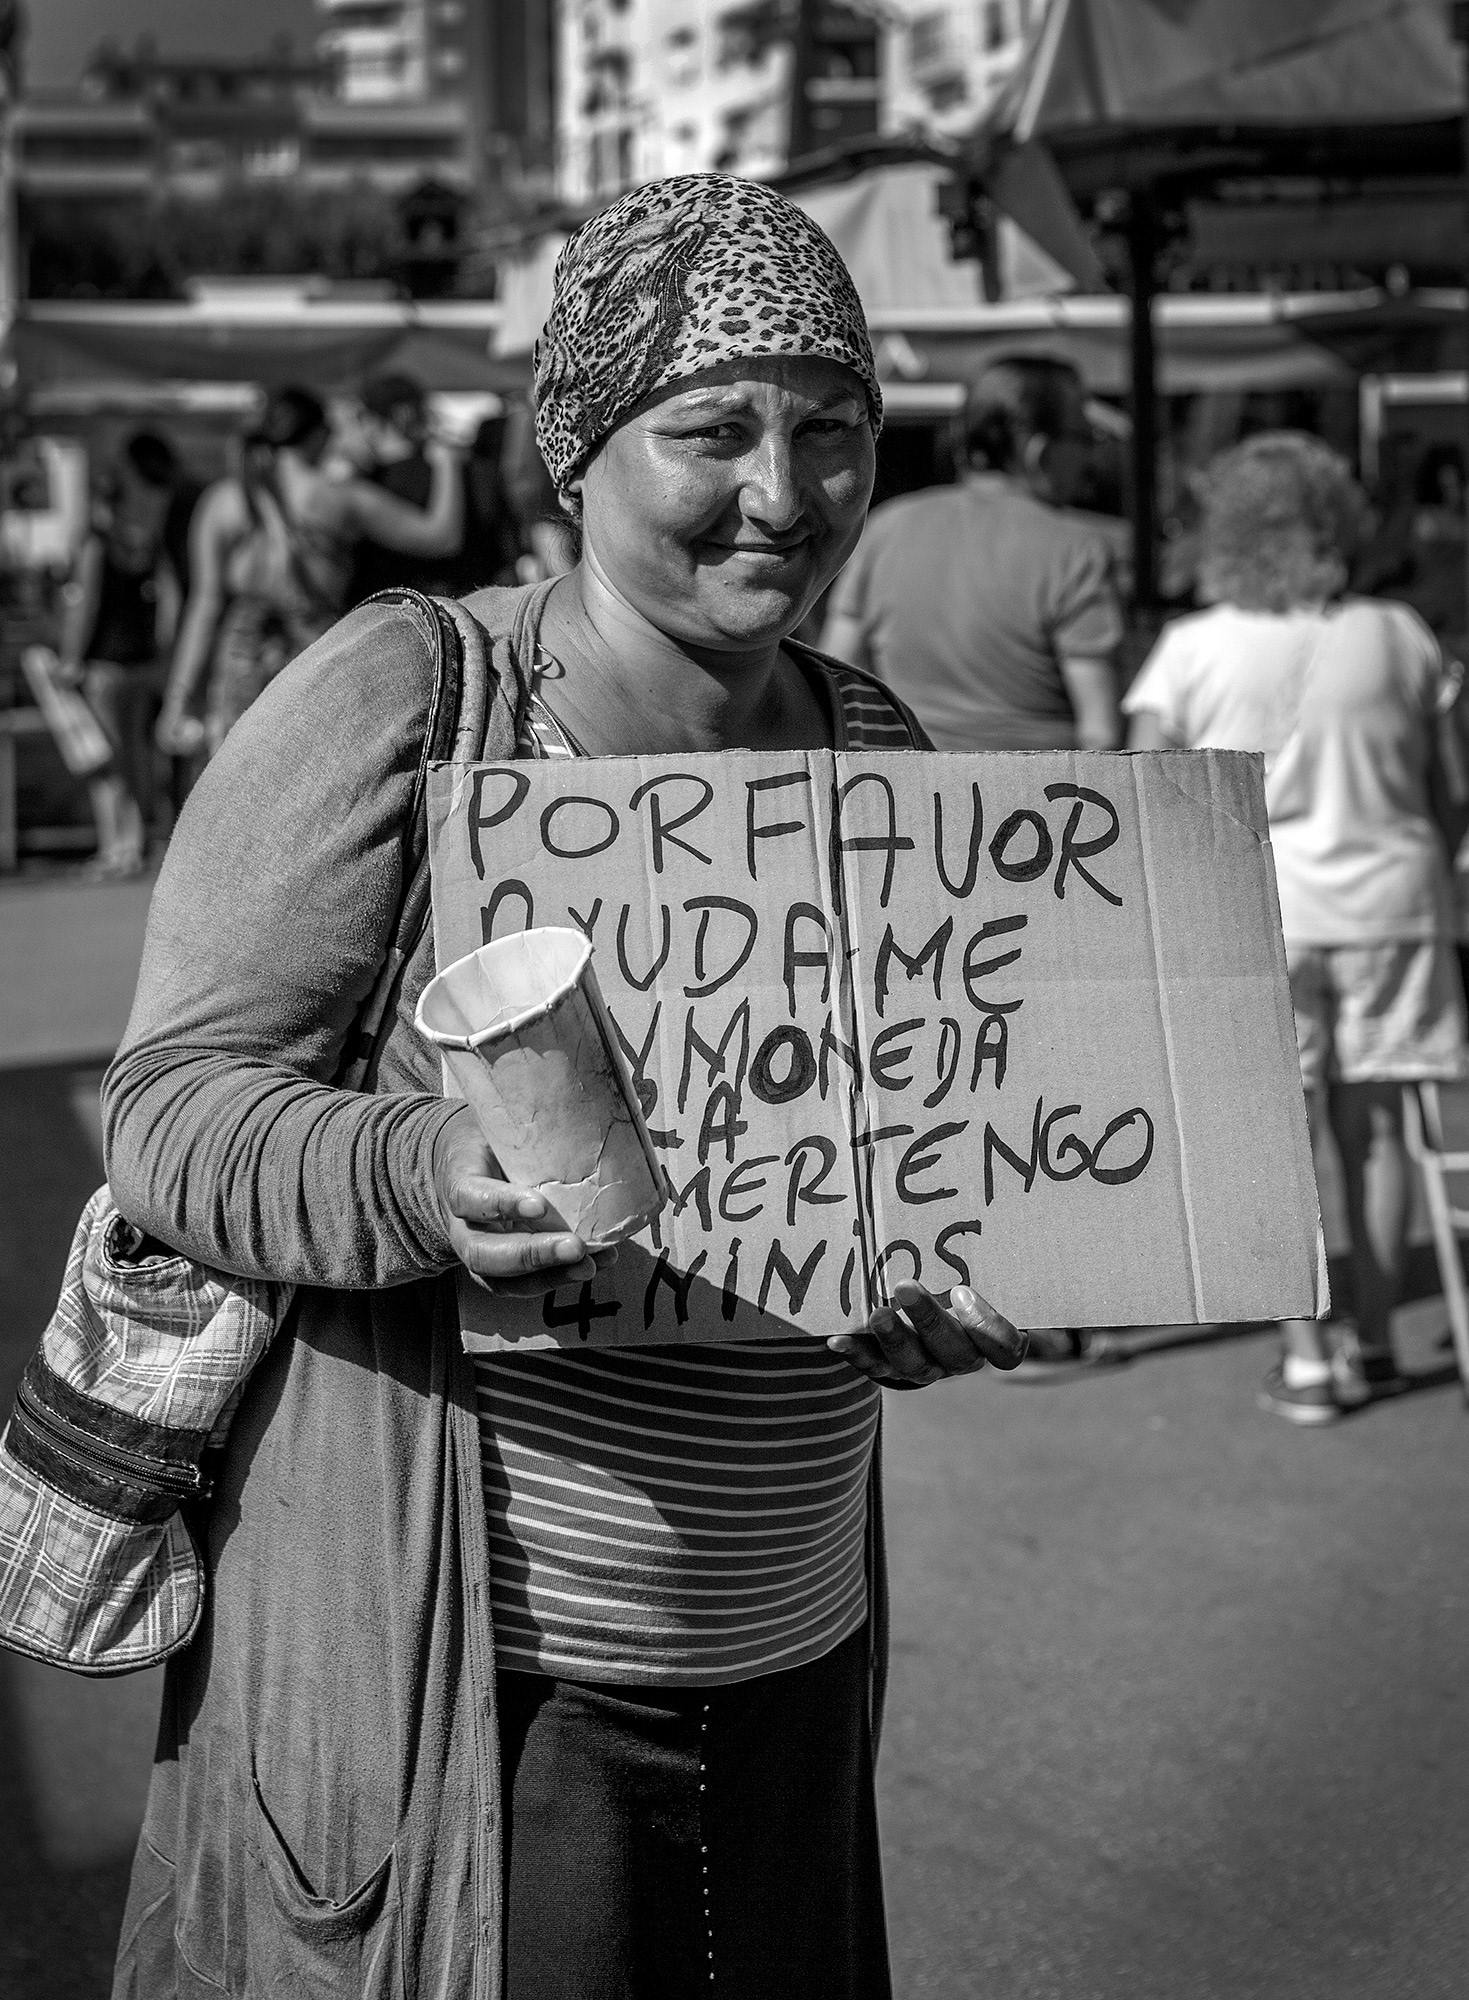 POR FAVOR
AYUDA-ME
MONEDA
TENGO
4 NINIOS